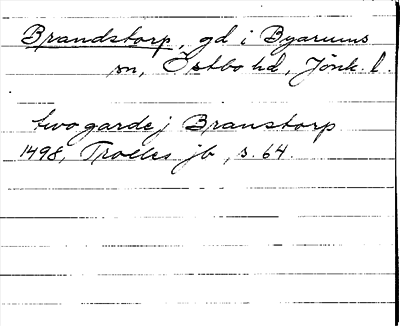 Brandstorp, gd i Byarums
sn, Östbo hd, Jönk. l.
two garde j Branstorp
1498, Trolles jb, s. 64.